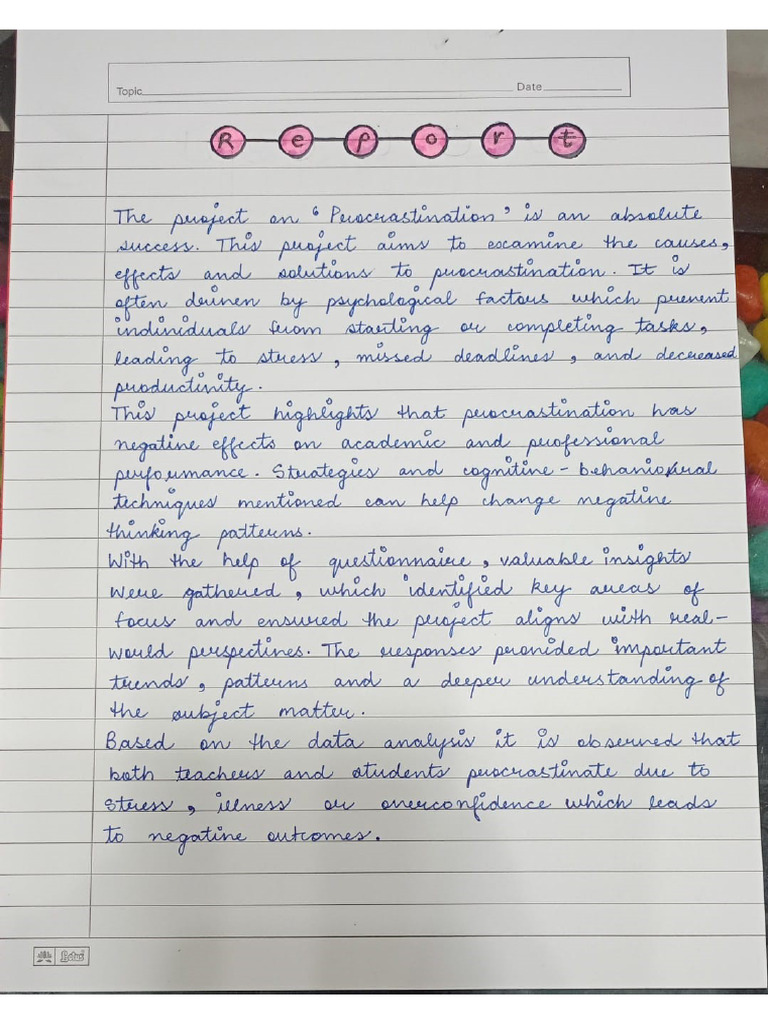 Topic
Date
Report
The project on "Procrastination" is an absolute
success. This project aims to examine the causes,
effects and solutions to procrastination. It is
often driven by psychological factors which prevent
individuals from starting or completing tasks,
leading to stress, missed deadlines, and decreased
productivity.
This project highlights that procrastination has
negative effects on academic and professional
performance. Strategies and cognitive-behavioural
techniques mentioned can help change negative
thinking patterns.
With the help of questionnaire, valuable insights
were gathered, which identified key areas of
focus and ensured the project aligns with real-
world perspectives. The responses provided important
trends, patterns and a deeper understanding of
the subject matter.
Based on the data analysis it is observed that
both teachers and students procrastinate due to
stress, illness or overconfidence which leads
to negative outcomes.